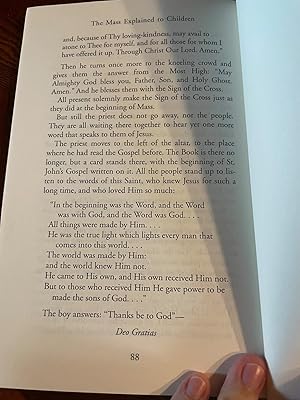 The Mass Explained to Children
and, because of Thy loving-kindness, may avail to
atone to Thee for myself, and for all those for whom I
have offered it up. Through Christ Our Lord. Amen."
Then he turns once more to the kneeling crowd and
gives them the answer from the Most High: "May
Almighty God bless you, Father, Son, and Holy Ghost.
Amen." And he blesses them with the Sign of the Cross.
All present solemnly make the Sign of the Cross just as
they did at the beginning of Mass.
But still the priest does not go away, nor the people.
They are all waiting there together to hear yet one more
word that speaks to them of Jesus.
The priest moves to the left of the altar, to the place
where he had read the Gospel before. The Book is there no
longer, but a card stands there, with the beginning of St.
John's Gospel written on it. All the people stand up to lis-
ten to the words of this Saint, who knew Jesus for such a
long time, and who loved Him so much:
"In the beginning was the Word, and the Word
was with God, and the Word was God. . . .
All things were made by Him. . . .
He was the true light which lights every man that
comes into this world. . . .
The world was made by Him:
and the world knew Him not.
He came to His own, and His own received Him not.
But to those who received Him He gave power to be
made the sons of God. . . ."
The boy answers: "Thanks be to God"—
Deo Gratias
88